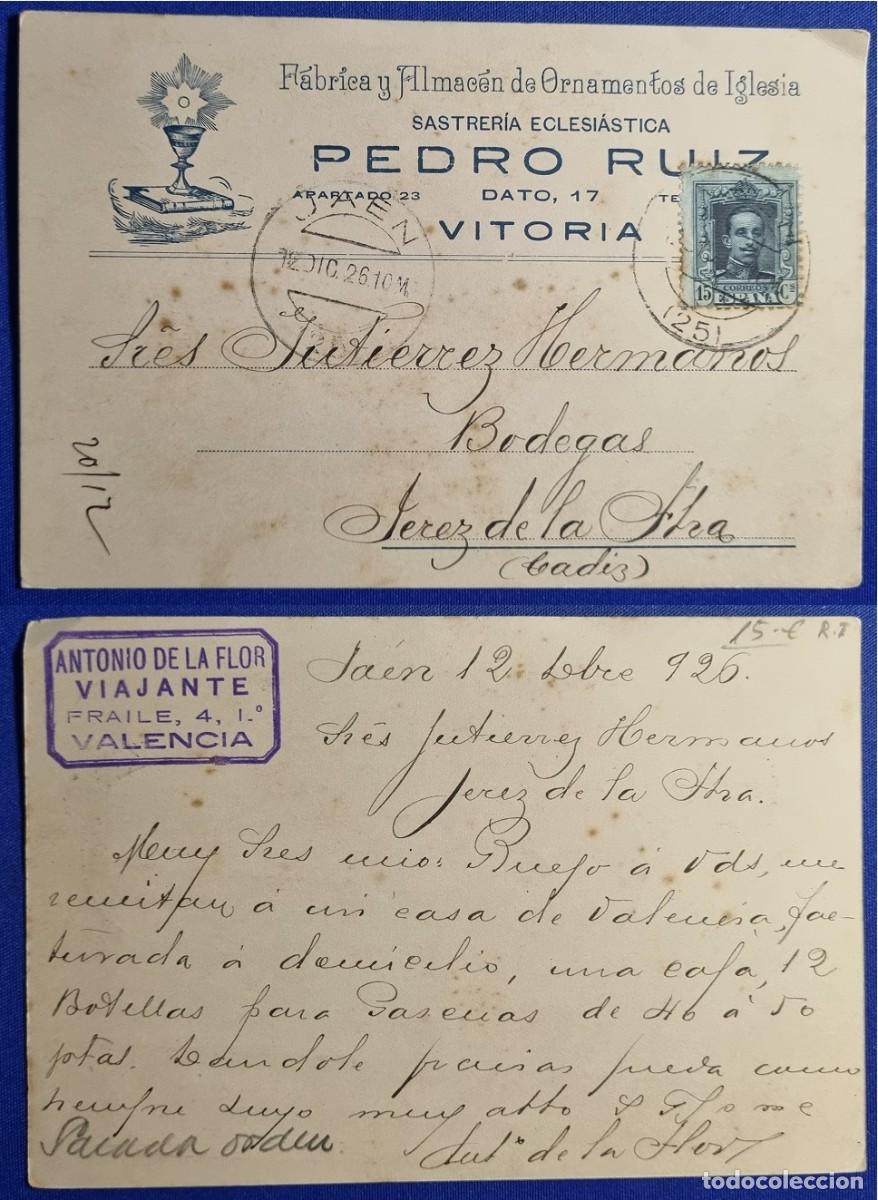 Fábrica y Almacén de Ornamentos de Iglesia
SASTRERÍA ECLESIÁSTICA
PEDRO RUIZ
APARTADO 23 DATO, 17 TE
VITORIA
JAEN
12 DIC. 26. 10M
15 CORREOS Cs
ESPAÑA
(25)
Srēs Gutierrez Hermanos
Bodegas
Jerez de la Ftra
(Cadiz)
20/12
15-€ R.I
ANTONIO DE LA FLOR
VIAJANTE
FRAILE, 4, 1.º
VALENCIA
Jaén 12 Dbre 926.
Srēs Gutierrez Hermanos
Jerez de la Ftra.
Muy Sres mio: Ruego á Vds, me
remitan á mi casa de Valencia, fac-
turada á domicilio, una caja, 12
Botellas para Pascuas de 40 á 50
ptas. Dandole gracias queda como
siempre suyo muy atto S
Antº de la Flor
Sacada orden.
todocoleccion